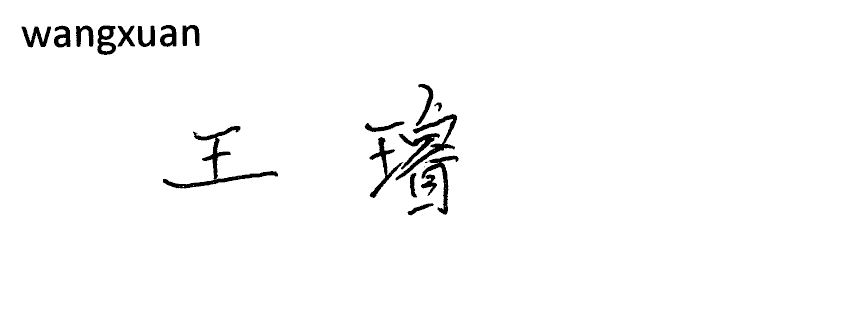 wangxuan
王 璿